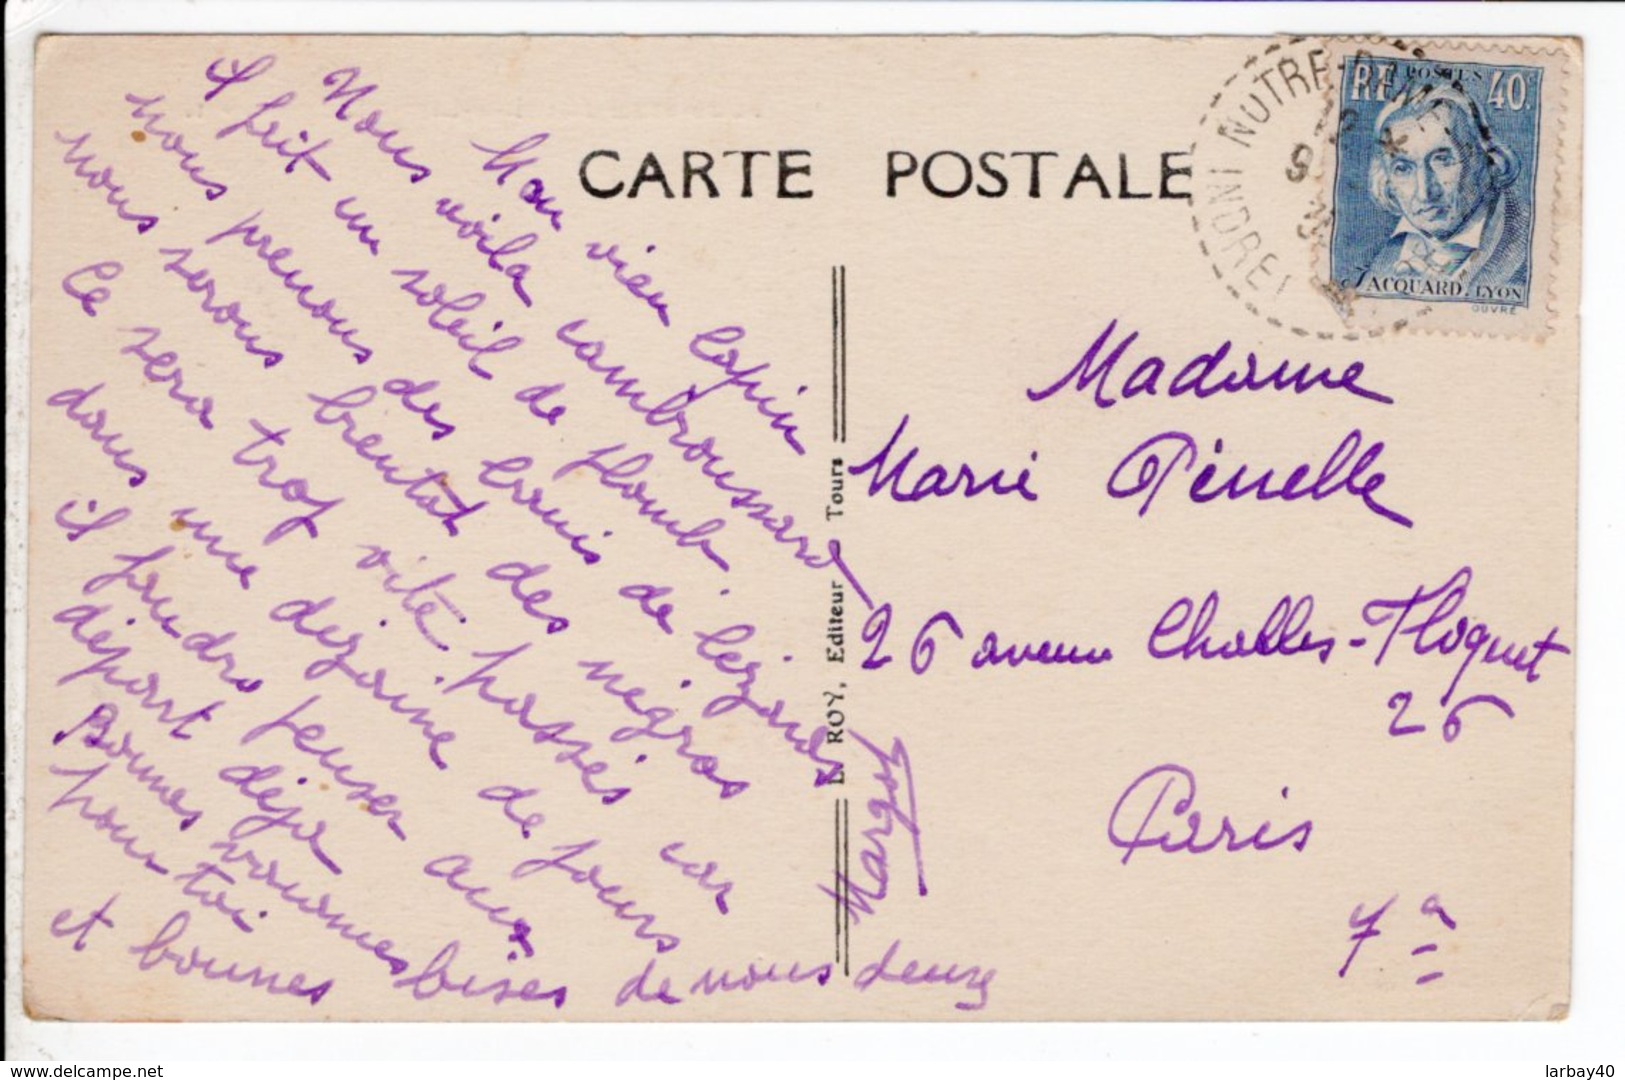 CARTE POSTALE
Mon vieux lapin
Nous voila cambroussard
il fait un soleil de plomb.
nous prenons des bains de lezards
nous serons bientot des négros
Ce sera trop vite passés car
dans une dizaine de jours
il faudra penser aux
départ déja
Bonnes vacances
pour toi
et bonnes bises de nous deux
Margot
LE ROY, Editeur Tours
NOTRE-DAME
INDRE
RF POSTES 40c
JACQUARD. LYON
OUVRÉ
Madame
Marie Pénelle
26 avenue Challes-Floquet
26
Paris
7e
www.delcampe.net
larbay40